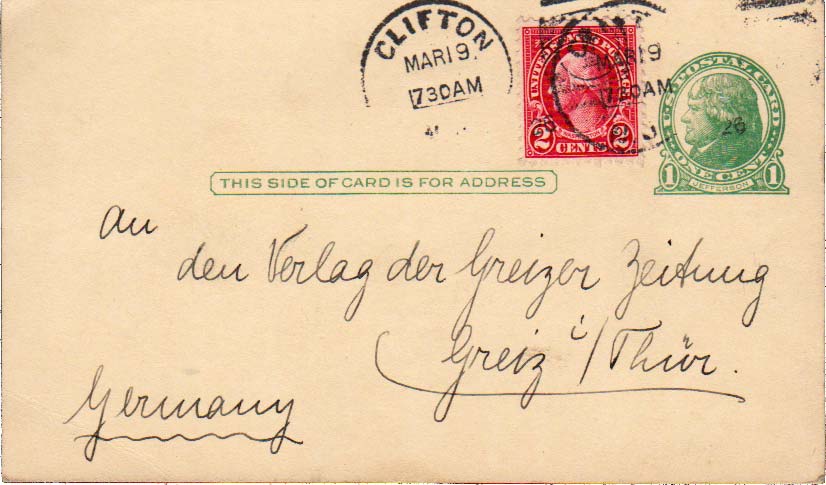 CLIFTON
MAR 19
7 30 AM
MAR 19
7 30 AM
26
UNITED STATES POSTAGE
2 CENTS 2
U.S. POSTAL CARD
1 ONE CENT 1
JEFFERSON
THIS SIDE OF CARD IS FOR ADDRESS
An
den Verlag der Greizer Zeitung
Greiz i/Thür.
Germany